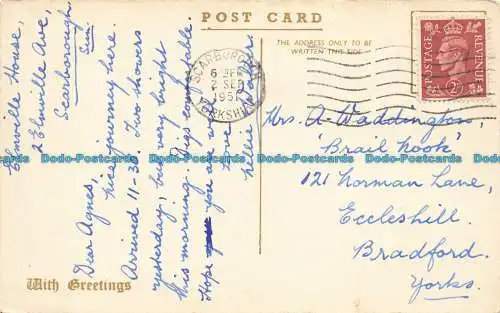 POST CARD
THE ADDRESS ONLY TO BE
WRITTEN THIS SIDE
Elmville House,
2 Elmville Ave,
Scarborough.
Sun.
Dear Agnes,
Nice journey here.
Arrived 11-30. Two showers
yesterday, but very bright
this morning. Digs comfortable.
Hope you are
love
Nellie
With Greetings
SCARBOROUGH
2 SEP
1951
YORKSHIRE
POSTAGE
REVENUE
2D
Mrs. A. Waddington,
"Brail Nook"
121 Norman Lane,
Eccleshill.
Bradford.
Yorks.
Dodo-Postcards.com Dodo-Postcards.com Dodo-Postcards.com Dodo-Postcards.com